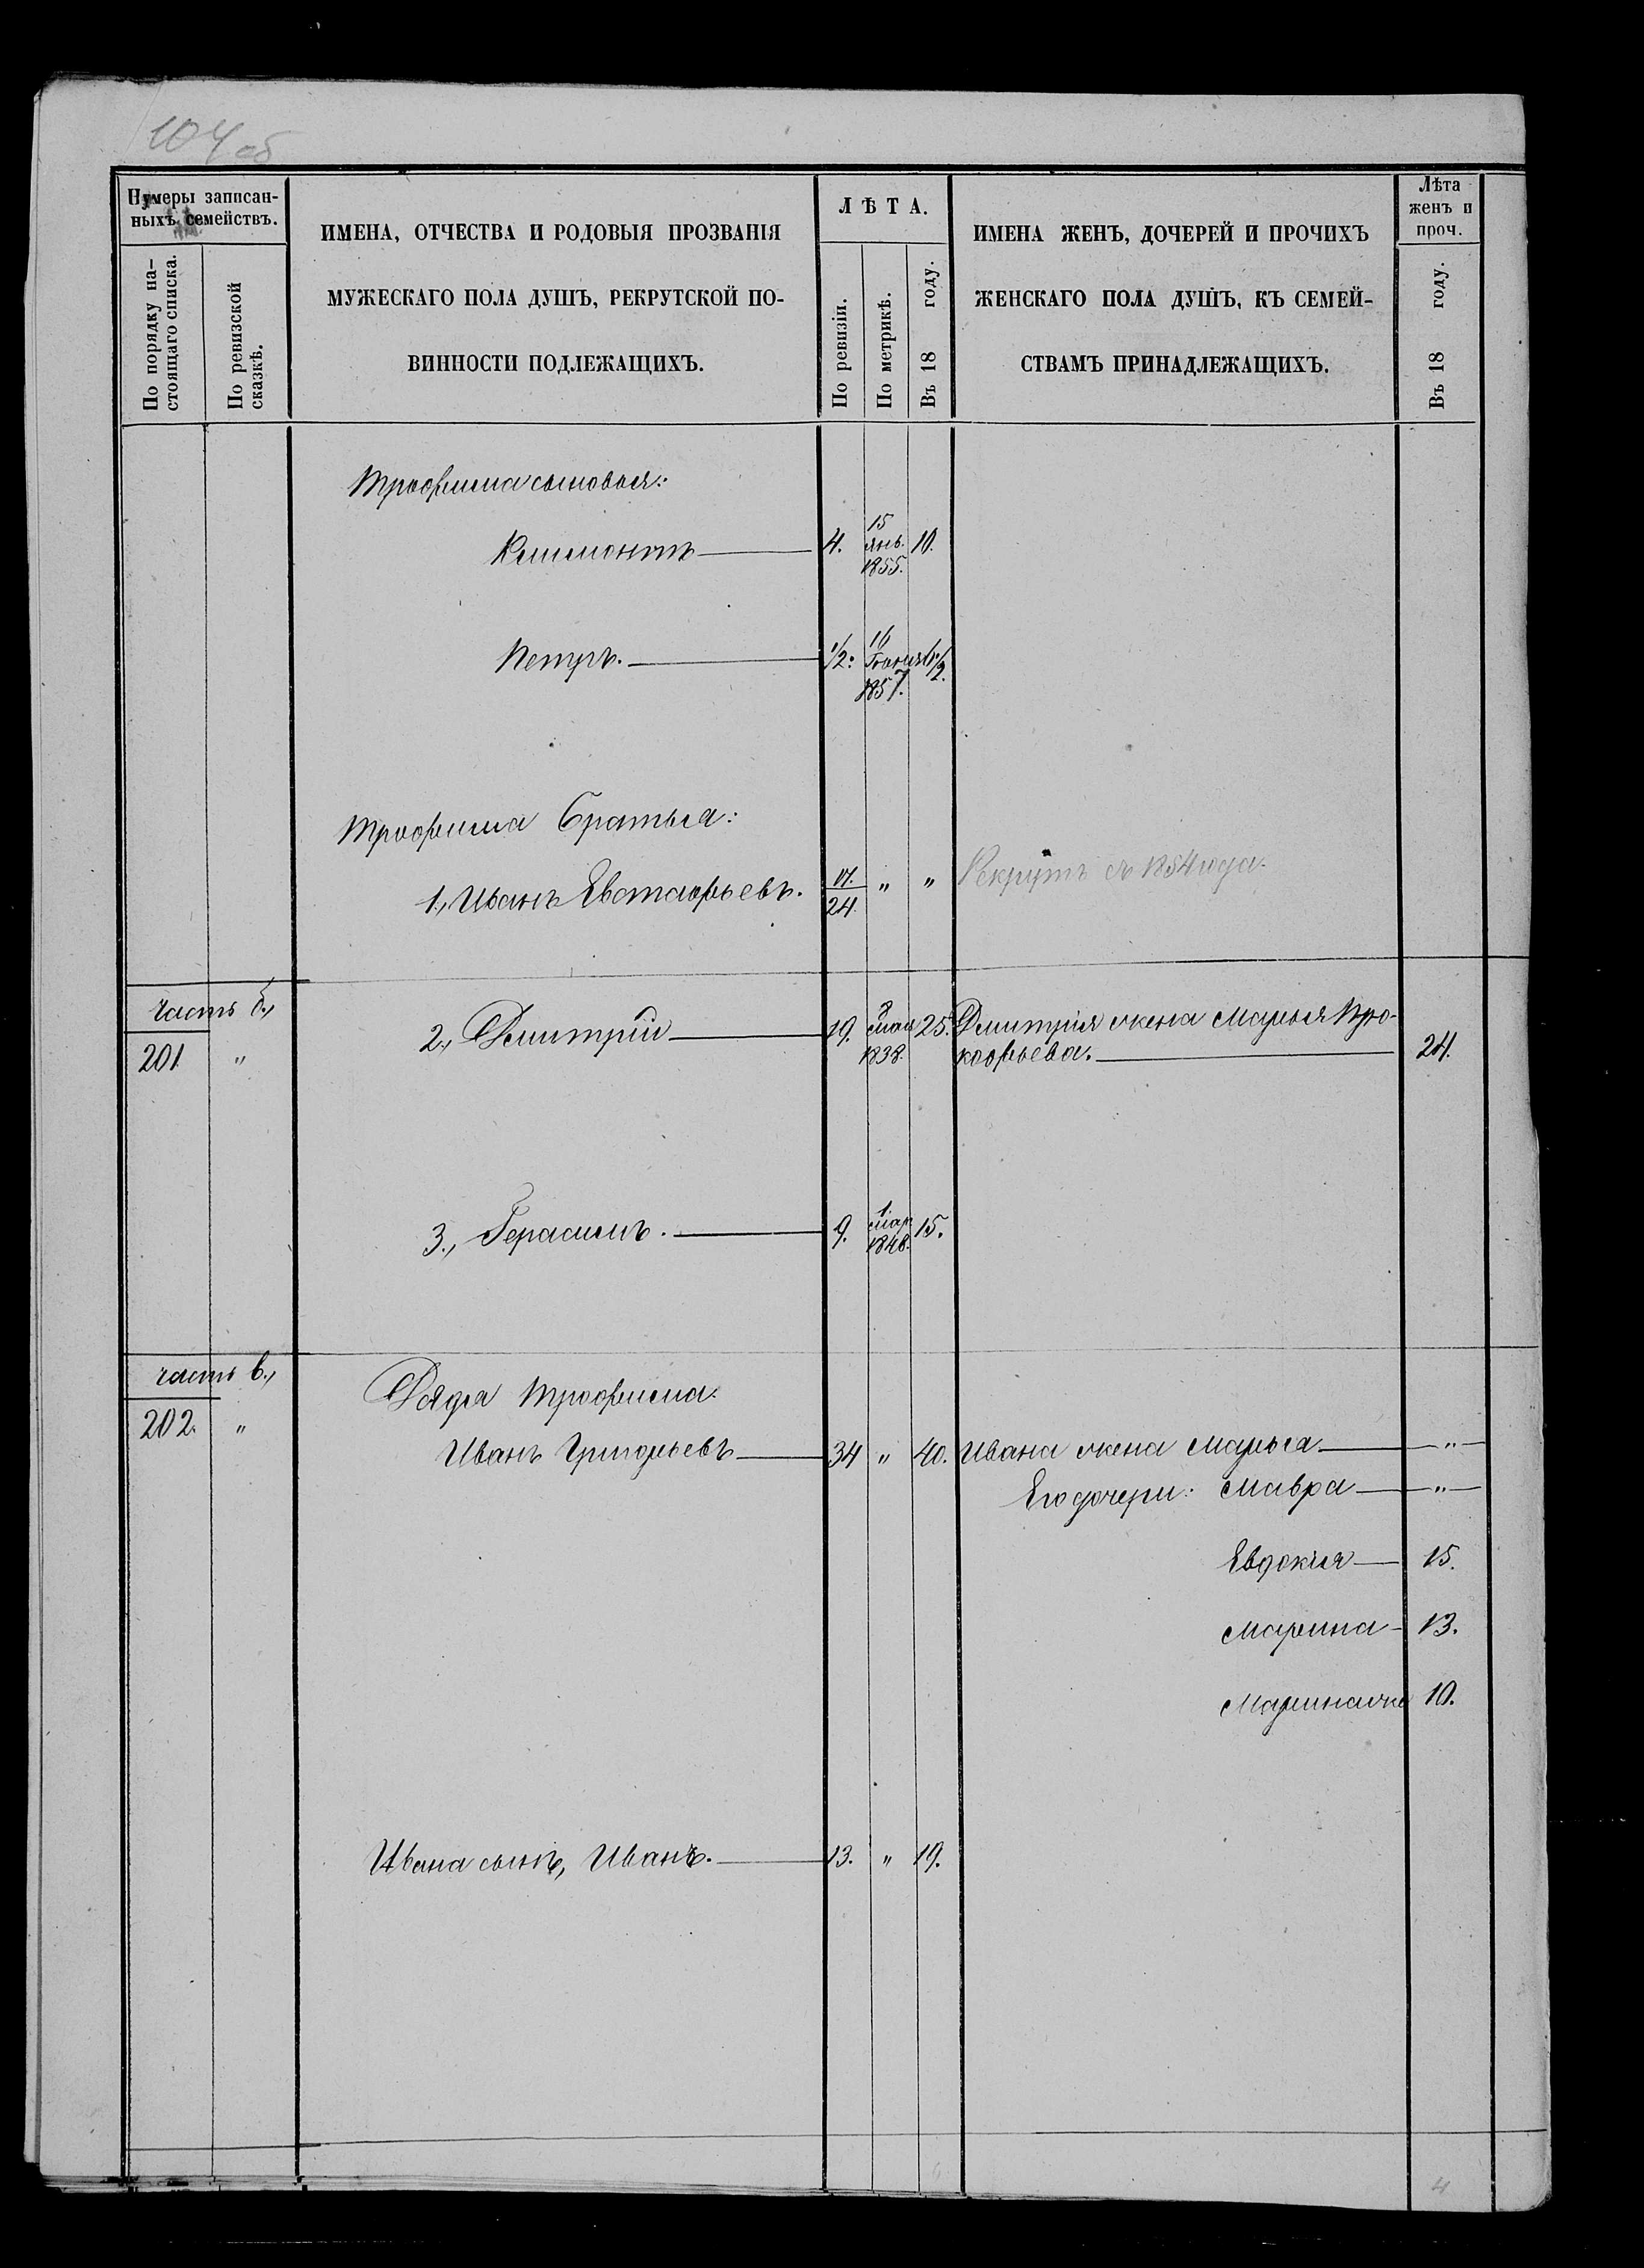 104 об
Нумеры записан-
ныхъ семействъ.
По порядку на-
стоящаго списка.
По ревизской
сказкѣ.
ИМЕНА, ОТЧЕСТВА И РОДОВЫЯ ПРОЗВАНІЯ
МУЖЕСКАГО ПОЛА ДУШЪ, РЕКРУТСКОЙ ПО-
ВИННОСТИ ПОДЛЕЖАЩИХЪ.
ЛѢТА.
По ревизіи.
По метрикѣ.
Въ 18 году.
ИМЕНА ЖЕНЪ, ДОЧЕРЕЙ И ПРОЧИХЪ
ЖЕНСКАГО ПОЛА ДУШЪ, КЪ СЕМЕЙ-
СТВАМЪ ПРИНАДЛЕЖАЩИХЪ.
Лѣта
женъ и
проч.
Въ 18 году.
Трофима сыновья:
Климонтъ 4. 15 янв. 1855. 10.
Петръ. 1/2. 16 Іюня 1857. 6 1/2.
Трофима Братья:
1., Иванъ Евстафьевъ. 17./24. " " Рекрутъ съ 1854 года.
часть б.,
201. "
2., Димитрій 19. 8 мая 1838. 25. Димитрія жена Марья Про-
кофьева. 24.
3., Герасимъ. 9. 1 мар 1848. 15.
часть в.,
202. "
Дядя Трофима
Иванъ Григорьевъ 34 " 40. Ивана жена Марья "
Его дочери: Мавра "
Евдокія 15.
Марина 13.
10.
Ивана сынъ, Иванъ. 13. " 19.
4